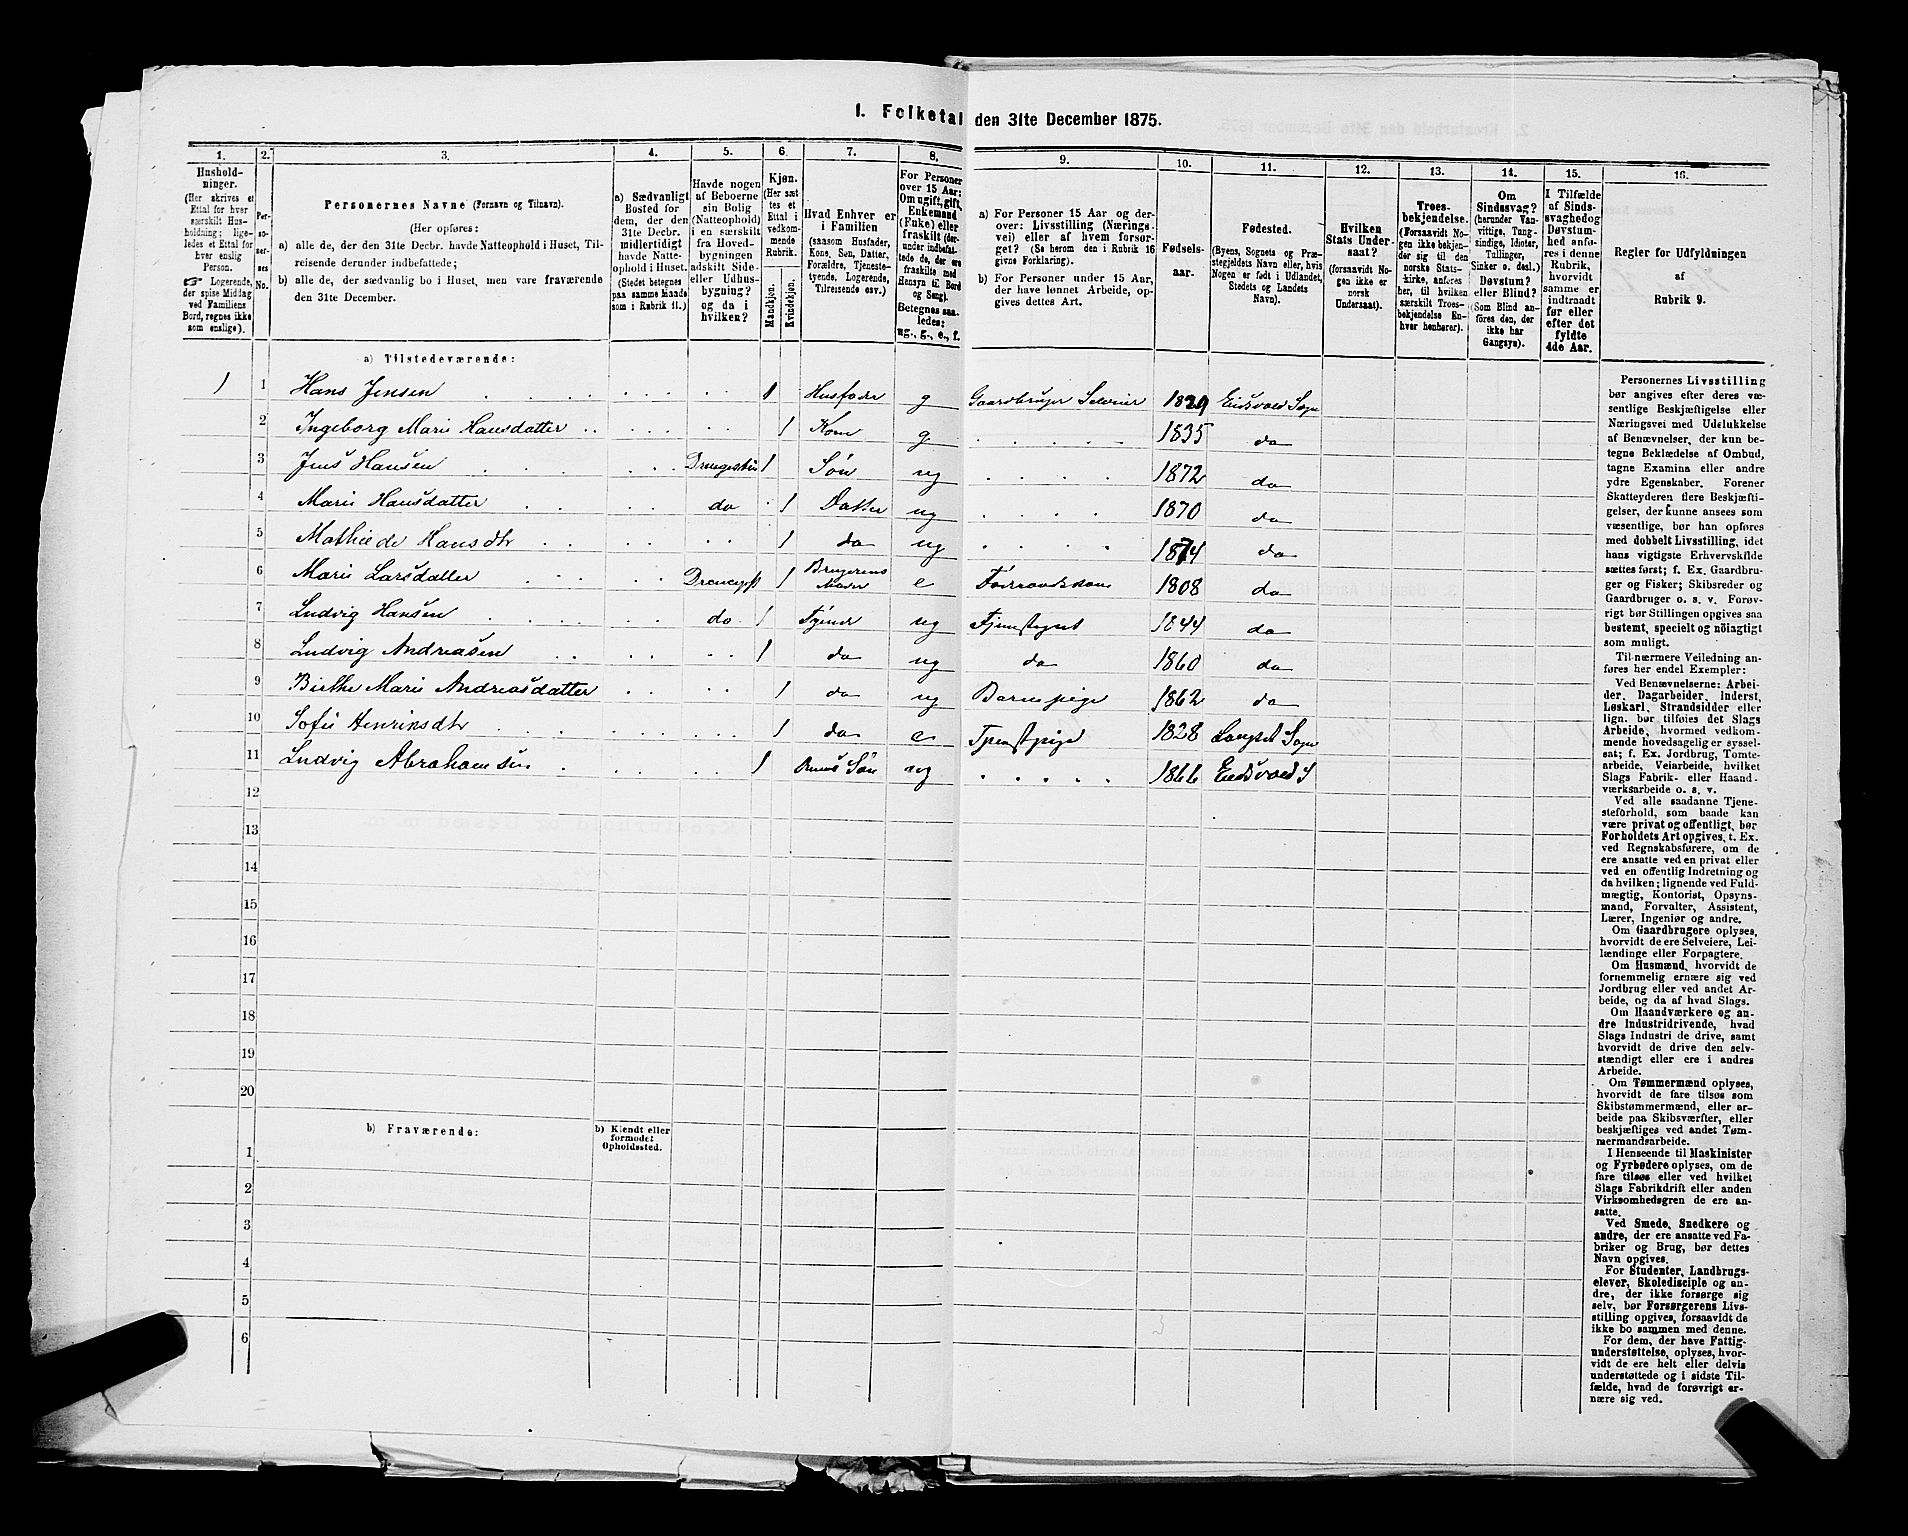 1. Folketal den 31te December 1875.
1. 2. 3. 4. 5. 6. 7. 8. 9. 10. 11. 12. 13. 14. 15. 16.
Hushold-
ninger.
(Her skrives et
Ettal for hver
særskilt Hus-
holdning; lige-
ledes et Ettal for
hver enslig
Person.
☞ Logerende,
der spise Middag
ved Familiens
Bord, regnes ikke
som enslige).
Per-
so-
ner-
nes
No.
Personernes Navne (Fornavn og Tilnavn).
(Her opføres:
a) alle de, der den 31te Decbr. havde Natteophold i Huset, Til-
reisende derunder indbefattede;
b) alle de, der sædvanlig bo i Huset, men vare fraværende
den 31te December.
a) Sædvanligt
Bosted for
dem, der den
31te Decbr.
midlertidigt
havde Natte-
ophold i Huset.
(Stedet betegnes
paa samme Maade
som i Rubrik 11.)
Havde nogen
af Beboerne
sin Bolig
(Natteophold)
i en særskilt
fra Hoved-
bygningen
adskilt Side-
eller Udhus-
bygning?
og da i
hvilken?
Kjøn.
(Her sæt-
tes et
Ettal i
vedkom-
mende
Rubrik.
Mandkjøn.
Kvindekjøn.
Hvad Enhver er
i Familien
(saasom Husfader,
Kone, Søn, Datter,
Forældre, Tjeneste-
tyende, Logerende,
Tilreisende osv.)
For Personer
over 15 Aar:
Om ugift, gift,
Enkemand
(Enke) eller
fraskilt (der-
under indbefat-
tede de, der ere
fraskilte med
Hensyn til Bord
og Seng).
Betegnes saa-
ledes:
ug., g., e., f.
a) For Personer 15 Aar og der-
over: Livsstilling (Nærings-
vei) eller af hvem forsør-
get? (Se herom den i Rubrik 16
givne Forklaring).
b) For Personer under 15 Aar,
der have lønnet Arbeide, op-
gives dettes Art.
Fødsels-
aar.
Fødested.
(Byens, Sognets og Præ-
stegjeldets Navn eller, hvis
Nogen er født i Udlandet,
Stedets og Landets
Navn).
Hvilken
Stats Under-
saat?
(forsaavidt No-
gen ikke er
norsk
Undersaat).
Troes-
bekjendelse.
(Forsaavidt No-
gen ikke bekjen-
der sig til den
norske Stats-
kirke, anføres
her, til hvilken
særskilt Troes-
bekjendelse En-
hver henhører).
Om
Sindssvag?
(herunder Van-
vittige, Tung-
sindige, Idioter,
Tullinger,
Sinker o. desl.)
Døvstum?
eller Blind?
(Som Blind an-
føres den, der
ikke har
Gangsyn).
I Tilfælde
af Sinds-
svaghed og
Døvstum-
hed anfø-
res i denne
Rubrik,
hvorvidt
samme er
indtraadt
før eller
efter det
fyldte
4de Aar.
Regler for Udfyldningen
af
Rubrik 9.
a) Tilstedeværende:
1 1 Hans Jensen 1 Husfader g Gaardbruger Selveier 1829 Eidsvold Sogn
2 Ingeborg Marie Hansdatter 1 Kone g 1835 do
3 Jens Hansen 1 Søn ug 1872 do
4 Marie Hansdatter do 1 Datter ug 1870 do
5 Mathilde Hansdtr 1 do ug 1874 do
6 Maris Larsdatter 1 Brugerens Moder e Føderaadskone 1808 do
7 Ludvig Hansen do 1 Tjener ug 1844 do
8 Ludvig Andreasen 1 do ug do 1860 do
9 Birthe Marie Andreasdatter 1 do ug Barnepige 1862 do
10 Sofie Henriksdtr 1 do e Tjenstpige 1828 Langset Sogn
11 Ludvig Abrahamsen 1 Søn ug 1866 Eidsvold S
12
13
14
15
16
17
18
19
20
b) Fraværende:
b) Kjendt eller
formodet
Opholdssted.
1
2
3
4
5
6
Personernes Livsstilling
bør angives efter deres væ-
sentlige Beskjæftigelse eller
Næringsvei med Udelukkelse
af Benævnelser, der kun be-
tegne Beklædelse af Ombud,
tagne Examina eller andre
ydre Egenskaber. Forener
Skatteyderen flere Beskjæfti-
gelser, der kunne ansees som
væsentlige, bør han opføres
med dobbelt Livsstilling, idet
hans vigtigste Erhvervskilde
sættes først; f. Ex. Gaardbru-
ger og Fisker; Skibsreder og
Gaardbruger o. s. v. Forøv-
rigt bør Stillingen opgives saa
bestemt, specielt og nöiagtigt
som muligt.
Til nærmere Veiledning an-
føres her endel Exempler:
Ved Benævnelserne: Arbei-
der, Dagarbeider, Inderst,
Løskarl, Strandsidder eller
lign. bør tilføies det Slags
Arbeide, hvormed vedkom-
mende hovedsagelig er syssel-
sat; f. Ex. Jordbrug, Tomte-
arbeide, Veiarbeide, hvilket
Slags Fabrik- eller Haand-
værksarbeide o. s. v.
Ved alle saadanne Tjene-
steforhold, som baade kan
være privat og offentligt, bør
Forholdets Art opgives, t. Ex.
ved Regnskabsførere, om de
ere ansatte ved en privat eller
ved en offentlig Indretning og
da hvilken; lignende ved Fuld-
mægtig, Kontorist, Opsyns-
mand, Forvalter, Assistent,
Lærer, Ingeniør og andre.
Om Gaardbrugere oplyses,
hvorvidt de ere Selveiere, Lei-
lændinge eller Forpagtere.
Om Husmænd, hvorvidt de
fornemmelig ernære sig ved
Jordbrug eller ved andet Ar-
beide, og da af hvad Slags.
Om Haandværkere og an-
dre Industridrivende, hvad
Slags Industri de drive, samt
hvorvidt de drive den selv-
stændigt eller ere i andres
Arbeide.
Om Tømmermænd oplyses,
hvorvidt de fare tilsøs som
Skibstømmermænd, eller ar-
beide paa Skibsværfter, eller
beskjæftiges ved andet Tøm-
mermandsarbeide.
I Henseende til Maskinister
og Fyrbødere oplyses, om de
fare tilsøs eller ved hvilket
Slags Fabrikdrift eller anden
Virksomhedsgren de ere an-
satte.
Ved Smede, Snedkere og
andre, der ere ansatte ved Fa-
briker og Brug, bør dettes
Navn opgives.
For Studenter, Landbrugs-
elever, Skoledisciple og an-
dre, der ikke forsørge sig
selv, bør Forsørgerens Livs-
stilling opgives, forsaavidt de
ikke bo sammen med denne.
For dem, der have Fattig-
understøttelse, oplyses, hvor-
vidt de ere helt eller delvis
understøttede og i sidste Til-
fælde, hvad de forøvrigt er-
nære sig ved.